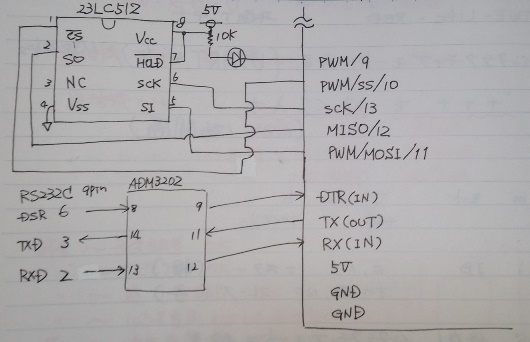 23LC512
5V
1 8
C̅S̅ Vcc
10K
2 SO H̅O̅L̅D̅ 7
3 NC SCK 6
4 Vss SI 5
PWM/9
PWM/SS/10
SCK/13
MISO/12
PWM/MOSI/11
RS232C 9pin
ADM3202
DSR 6 8 9 DTR(IN)
TXD 3 14 11 TX(OUT)
RXD 2 13 12 RX(IN)
5V
GND
GND